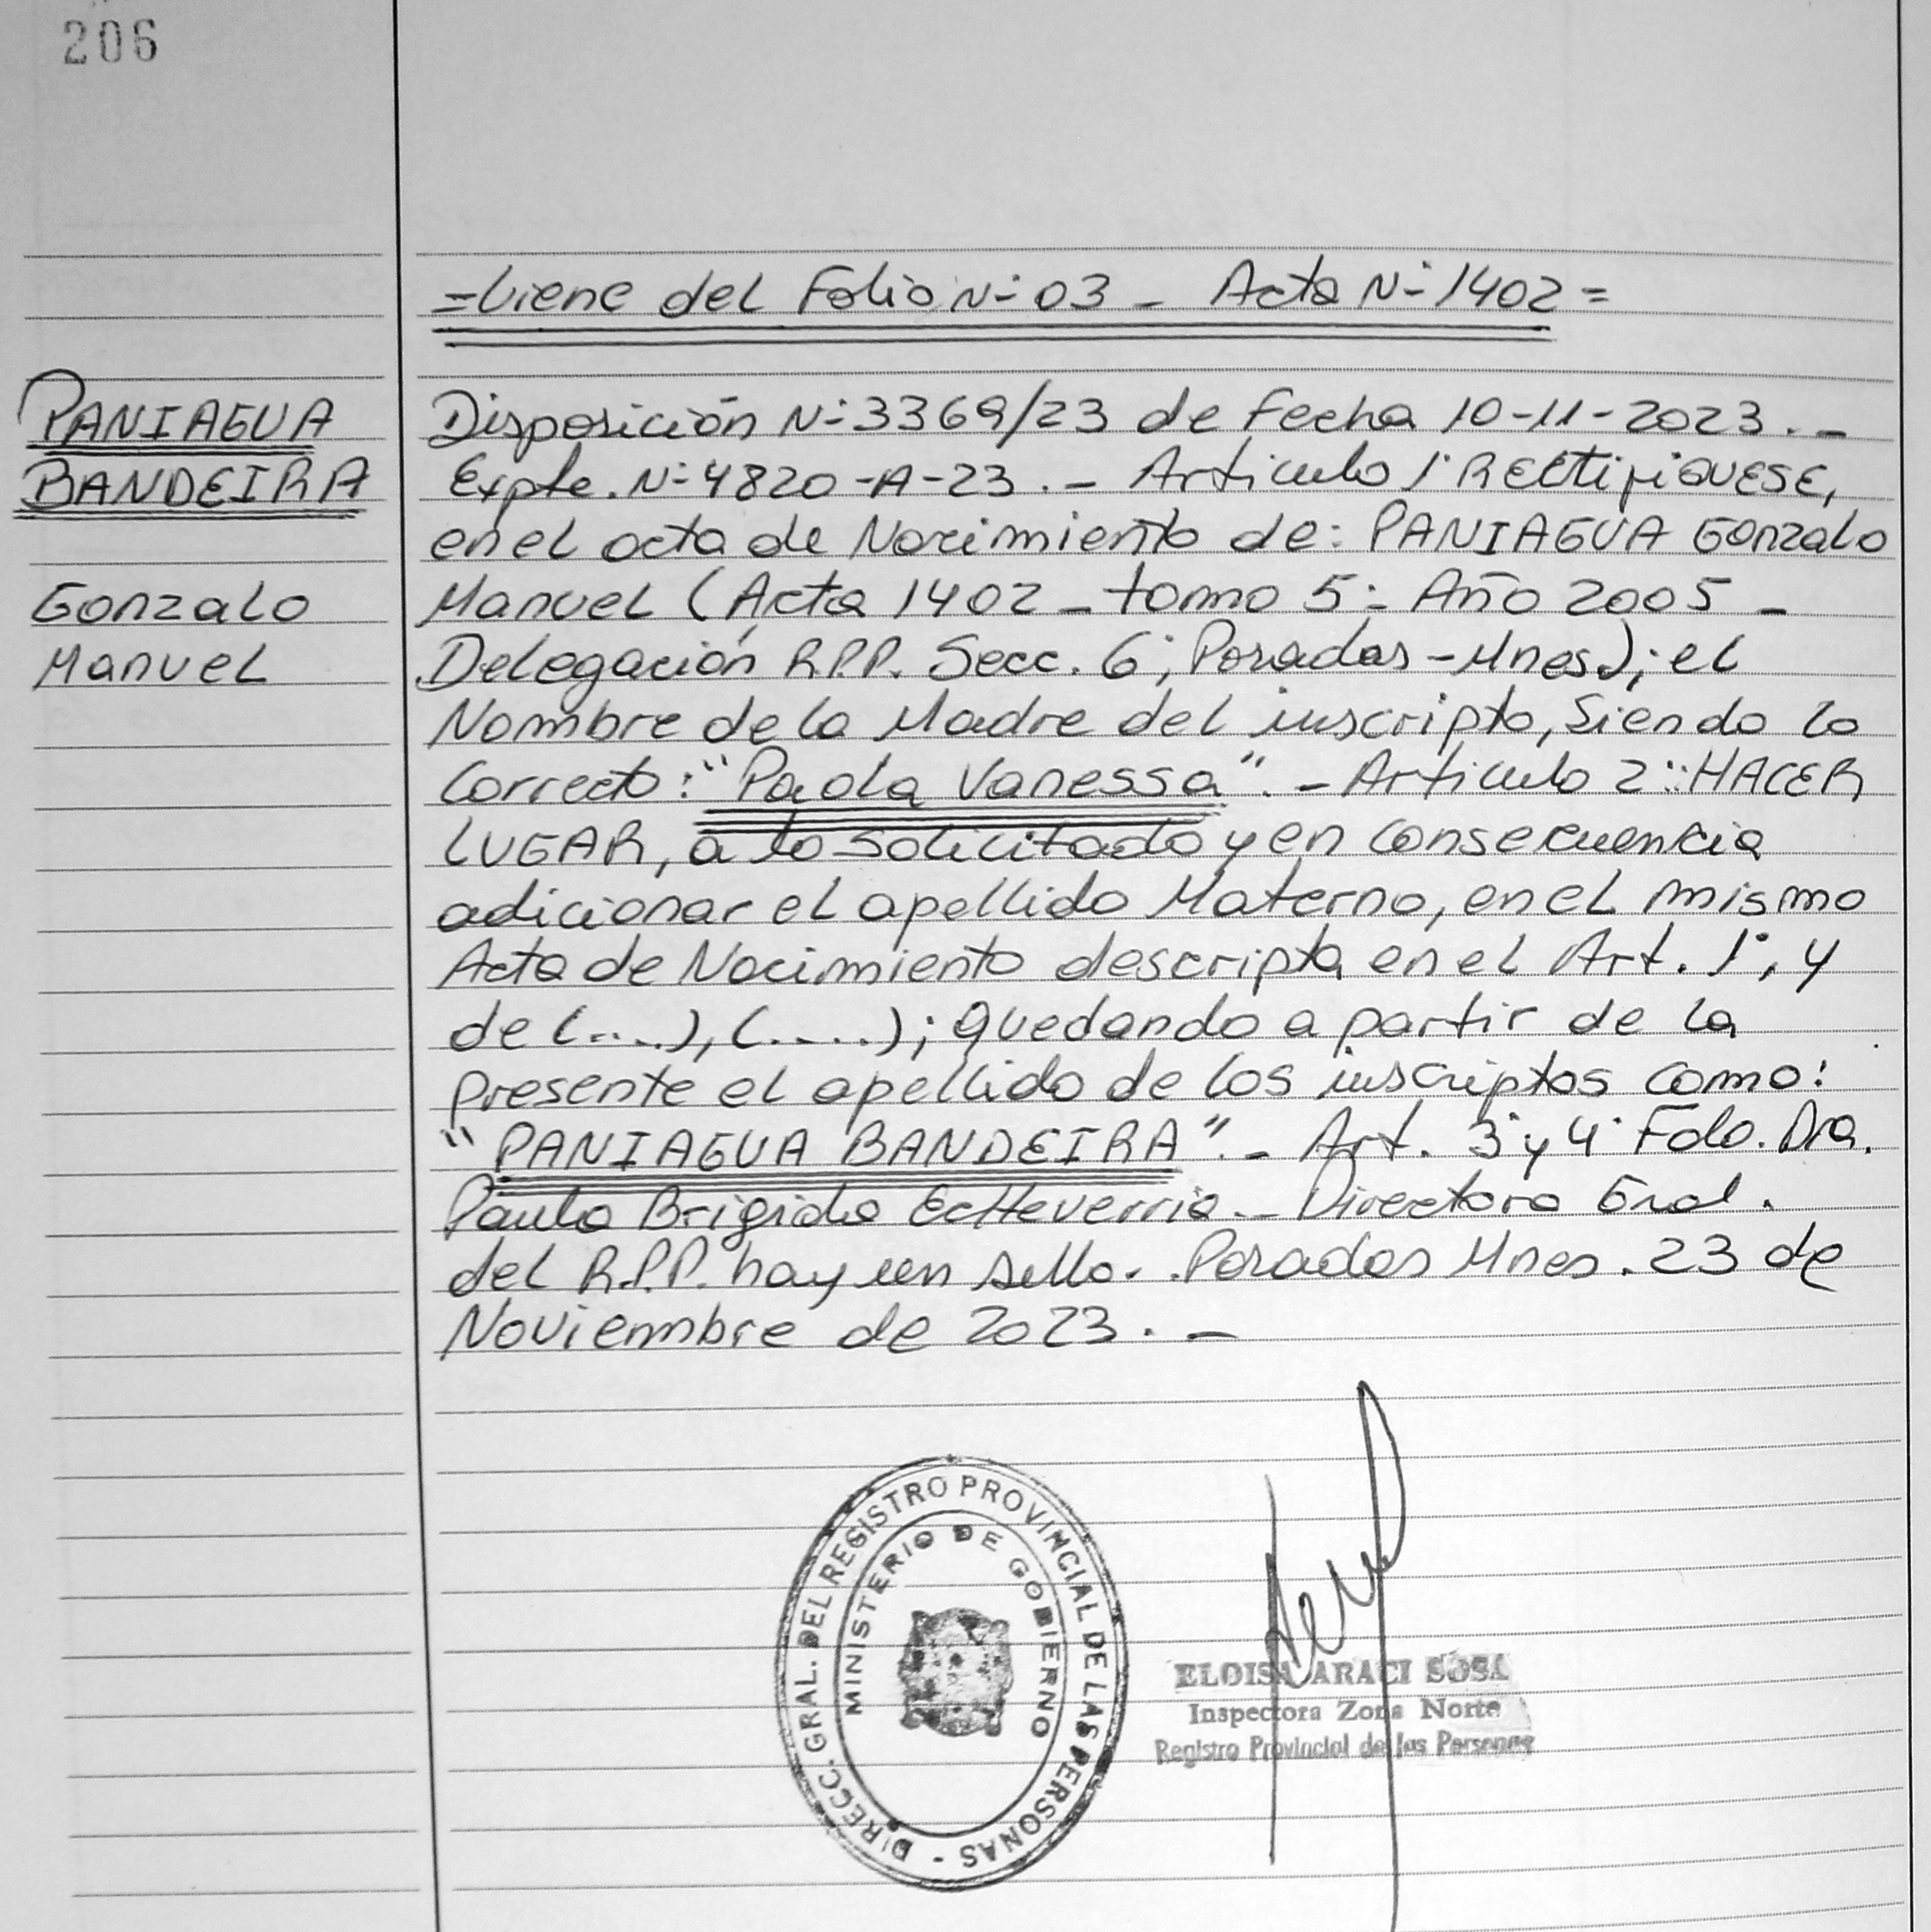 206
=Viene del Folio N° 03 - Acta N° 1402=
PANIAGUA
BANDEIRA
Gonzalo
Manuel
Disposición N° 3369/23 de Fecha 10-11-2023.-
Expte. N° 4820-A-23.- Articulo 1° RECtifiQUESE,
en el acta de Nacimiento de: PANIAGUA Gonzalo
Manuel (Acta 1402 - tomo 5° Año 2005 -
Delegación R.P.P. Secc. 6°, Posadas - Mnes.); el
Nombre de la Madre del inscripto, Siendo lo
Correcto: "Paola Vanessa". - Articulo 2°: HACER
LUGAR, a lo solicitado y en consecuencia
adicionar el apellido Materno, en el mismo
Acta de Nacimiento descripta en el Art. 1°, y
de (....), (.....); quedando a partir de la
presente el apellido de los inscriptos como:
"PANIAGUA BANDEIRA". - Art. 3° y 4° Fdo. Dra.
Paula Brigida Echeverria.- Directora Gral.
del R.P.P. hay un sello. Posadas Mnes. 23 de
Noviembre de 2023. -
DIRECC. GRAL. DEL REGISTRO PROVINCIAL DE LAS PERSONAS -
MINISTERIO DE GOBIERNO
ELOISA ARACI SOSA
Inspectora Zona Norte
Registro Provincial de las Personas